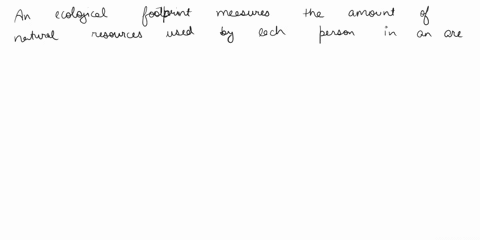 An ecological footprint measures the amount of
natural resources used by each person in an are